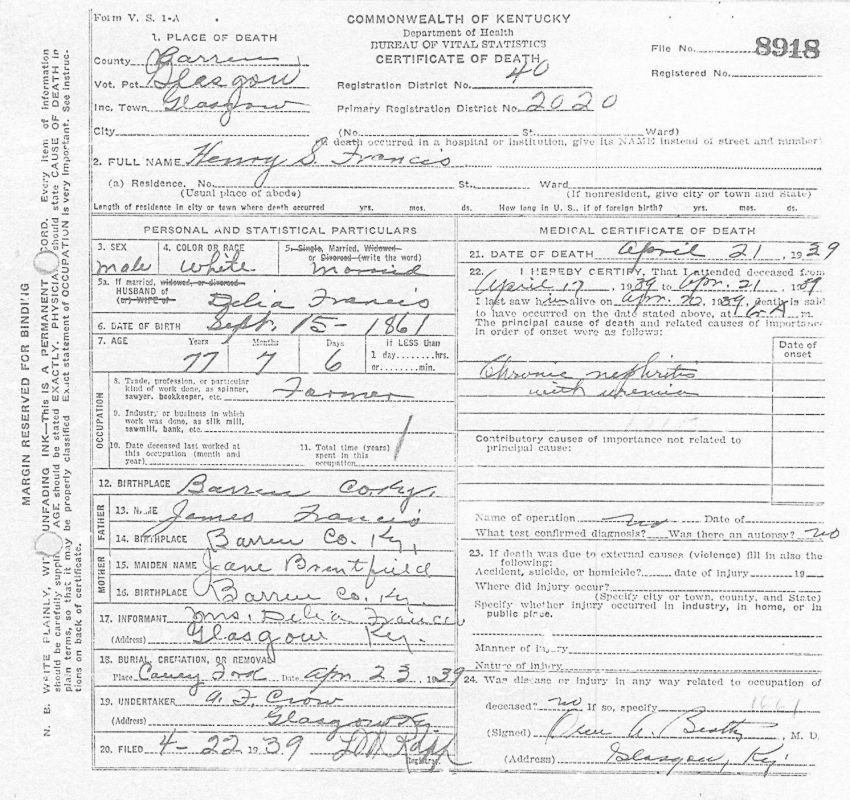 Form V. S. 1-A
COMMONWEALTH OF KENTUCKY
Department of Health
BUREAU OF VITAL STATISTICS
CERTIFICATE OF DEATH
File No. 8918
Registered No.
1. PLACE OF DEATH
County Barren
Vot. Pct. Glasgow
Inc. Town Glasgow
Registration District No. 40
Primary Registration District No. 2020
City (No. St. Ward)
(If death occurred in a hospital or institution, give its NAME instead of street and number)
2. FULL NAME Henry S. Francis
(a) Residence, No. St., Ward
(Usual place of abode) (If nonresident, give city or town and State)
Length of residence in city or town where death occurred yrs. mos. ds. How long in U. S., if of foreign birth? yrs. mos. ds.
PERSONAL AND STATISTICAL PARTICULARS
3. SEX 4. COLOR OR RACE 5. Single, Married, Widowed
or Divorced (write the word)
male White Married
5a. If married, widowed, or divorced
HUSBAND of
(or) WIFE of Delia Francis
6. DATE OF BIRTH Sept. 15 - 1861
7. AGE Years Months Days If LESS than
1 day, hrs.
77 7 6 or min.
OCCUPATION
8. Trade, profession, or particular
kind of work done, as spinner,
sawyer, bookkeeper, etc. Farmer
9. Industry or business in which
work was done, as silk mill,
sawmill, bank, etc.
10. Date deceased last worked at
this occupation (month and
year)
11. Total time (years)
spent in this
occupation
12. BIRTHPLACE Barren Co. Ky.
FATHER
13. NAME James Francis
14. BIRTHPLACE Barren Co. Ky.
MOTHER
15. MAIDEN NAME Jane Brentfield
16. BIRTHPLACE Barren Co. Ky.
17. INFORMANT Mrs. Delia Francis
(Address) Glasgow Ky.
18. BURIAL, CREMATION, OR REMOVAL
Place Caney Ford Date Apr 23, 1939
19. UNDERTAKER A. F. Crow
(Address) Glasgow Ky.
20. FILED 4-22 1939
Registrar.
MEDICAL CERTIFICATE OF DEATH
21. DATE OF DEATH April 21, 1939
22. I HEREBY CERTIFY, That I attended deceased from
April 17, 1939 to Apr. 21, 1939
I last saw him alive on Apr. 20, 1939, death is said
to have occurred on the date stated above, at A m.
The principal cause of death and related causes of importance
in order of onset were as follows:
Date of
onset
Chronic nephritis
with uremia
Contributory causes of importance not related to
principal cause:
Name of operation no Date of
What test confirmed diagnosis? Was there an autopsy? no
23. If death was due to external causes (violence) fill in also the
following:
Accident, suicide, or homicide? date of injury 19
Where did injury occur?
(Specify city or town, county, and State)
Specify whether injury occurred in industry, in home, or in
public place.
Manner of injury
Nature of injury
24. Was disease or injury in any way related to occupation of
deceased? no If so, specify
(Signed) Beatty, M. D.
(Address) Glasgow, Ky.
MARGIN RESERVED FOR BINDING
N. B. WRITE PLAINLY, WITH UNFADING INK—THIS IS A PERMANENT RECORD. Every item of information
should be carefully supplied. AGE should be stated EXACTLY. PHYSICIANS should state CAUSE OF DEATH in
plain terms, so that it may be properly classified. Exact statement of OCCUPATION is very important. See instruc-
tions on back of certificate.